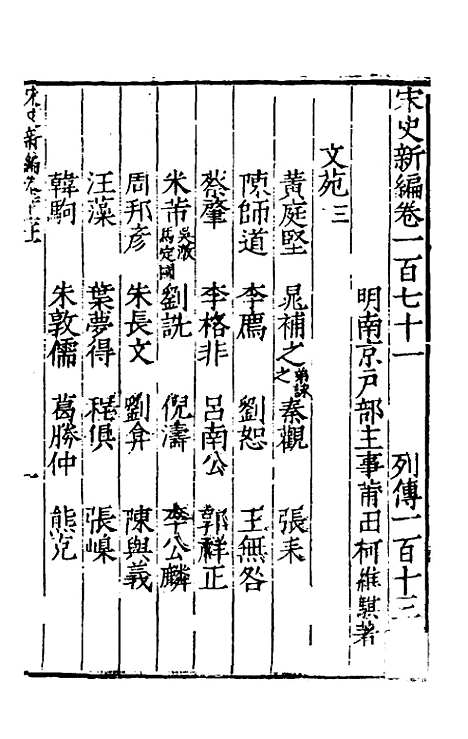 宋史新編卷一百七十一 列傳一百十三
明南京戸部主事莆田柯維騏著
文苑三
黃庭堅 晁補之 弟詠之 秦觀 張耒
陳師道 李廌 劉恕 王無咎
蔡肇 李格非 呂南公 郭祥正
米芾 吳激 馬定國 劉詵 倪濤 李公麟
周邦彦 朱長文 劉弇 陳與義
汪藻 葉夢得 程俱 張嵲
韓駒 朱敦儒 葛勝仲 熊克
宋史新編卷
一